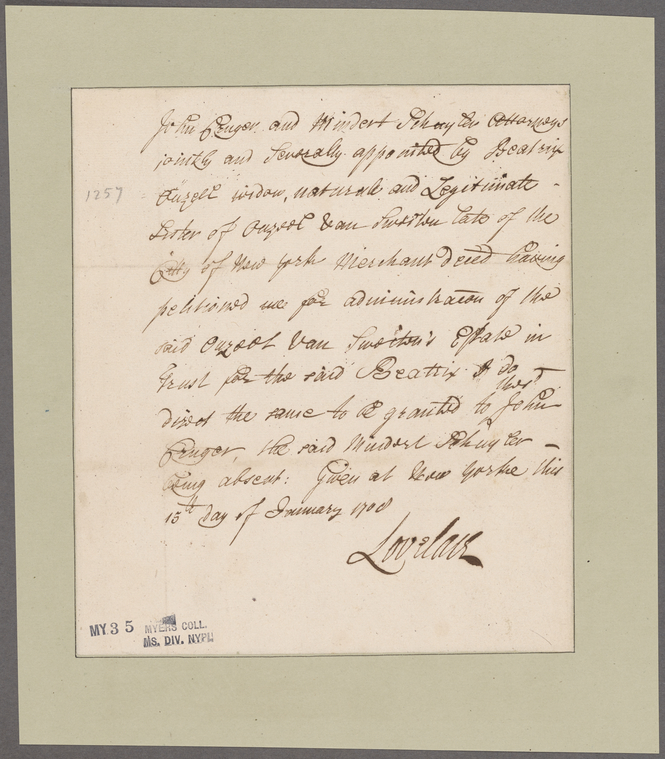 John Cruger and Mindert Schuyler Attorneys
jointly and Severally appointed by Beatrix
Ouzeel widow, naturale and Legitimate -
Sister of Ouzeel Van Swieten late of the
Citty of New York Merchant deced having
petitioned me for administracon of the
said Ouzeel Van Swieten's Estate in
trust for the said Beatrix I do
direct the same to be granted to the sd John
Cruger, the said Mindert Schuyler -
being absent: Given at New Yorke this
15th day of January 1708
Lovelace
1257
MY35 MYERS COLL.
MS. DIV. NYPL